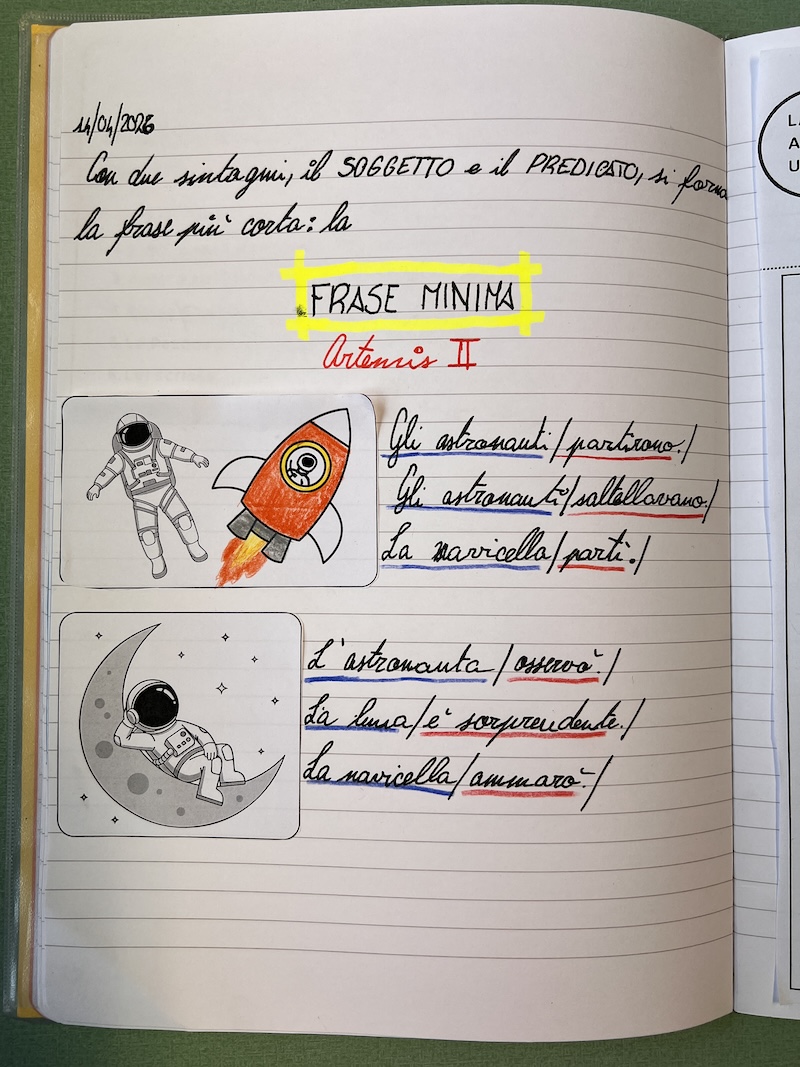 14/04/2026
Con due sintagmi, il SOGGETTO e il PREDICATO, si forma
la frase più corta: la
FRASE MINIMA
Artemis II
Gli astronauti/partirono./
Gli astronauti/saltellavano./
La navicella/partì./
L'astronauta/osservò./
La luna/è sorprendente./
La navicella/ammarò./
L
A
U